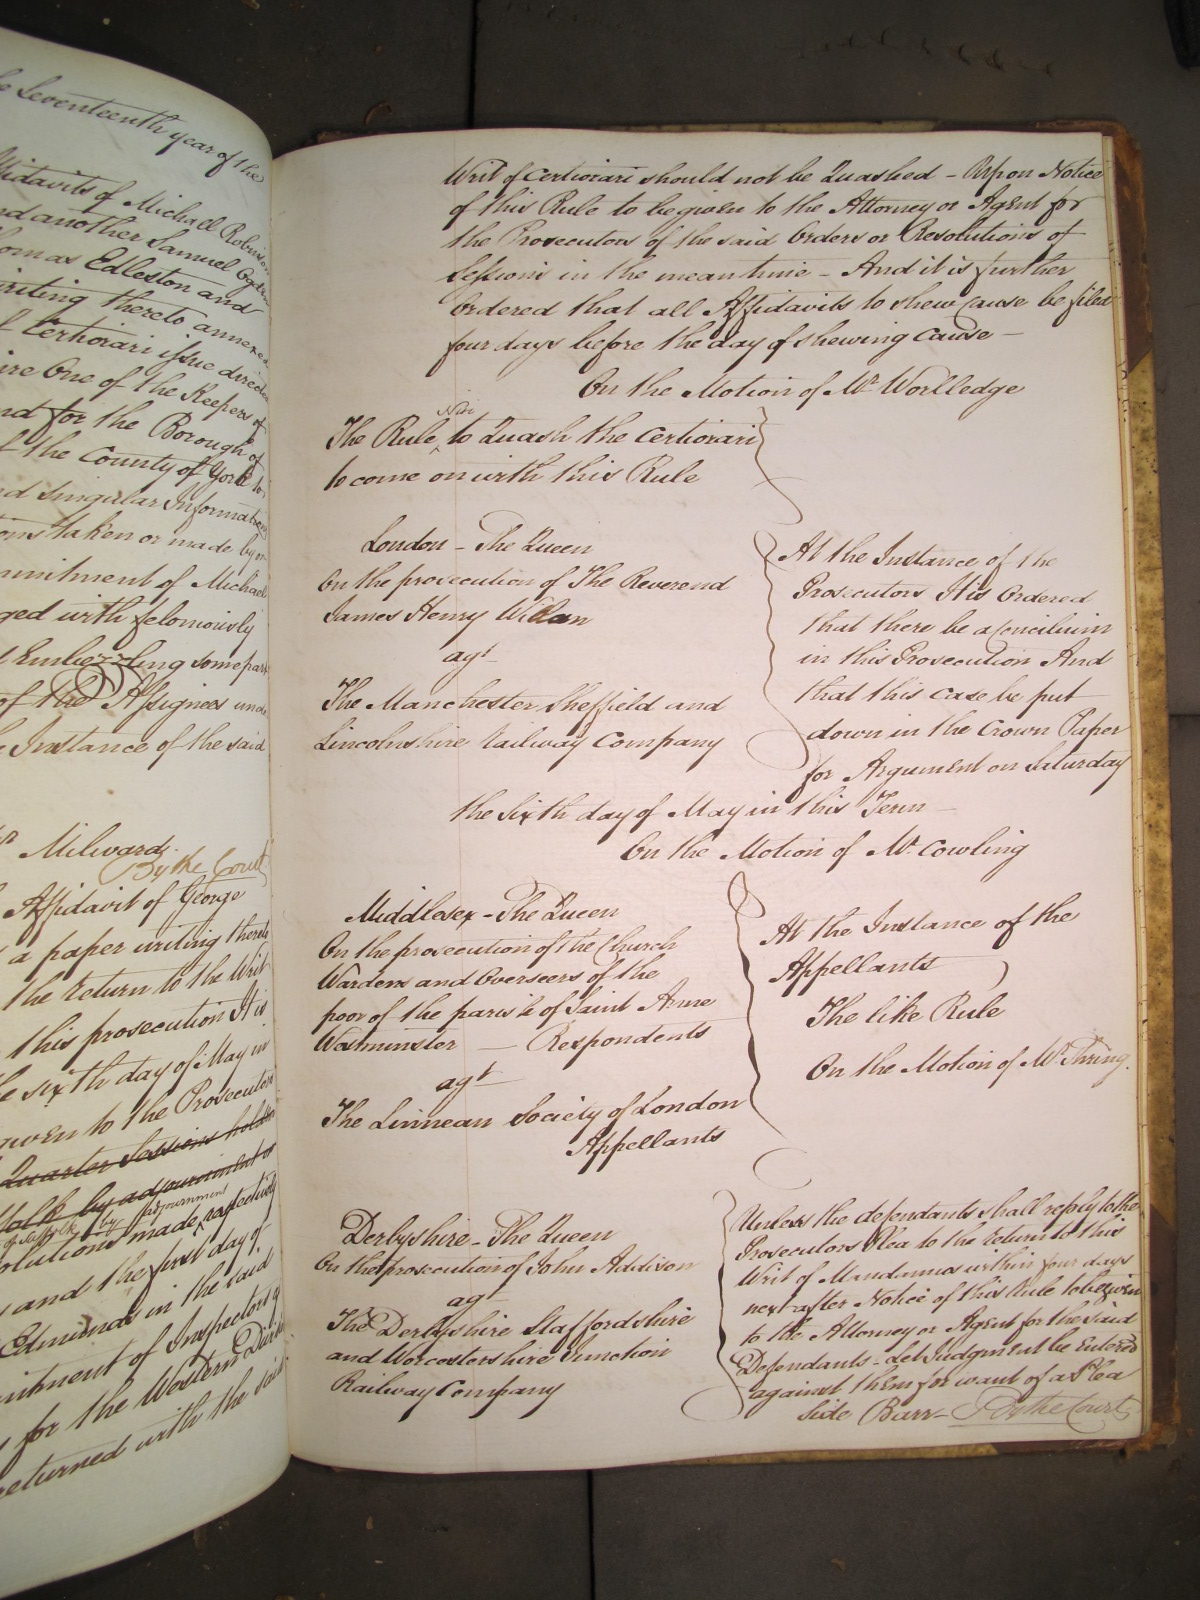 he Seventeenth year of the
ffidavits of Michael Robinson
nd another Samuel
homas Edleston and
riting thereto annexed
f Certiorari issue direct
ire One of the Keepers of
nd for the Borough of
f the County of York to
nd singular Information
ons taken or made by
mmitment of Michael
ged with feloniously
d Embezzling some part
of the Assignees unde
e Instance of the said
Mr Milward.
By the Court
Affidavit of George
a paper writing thereto
the return to the Writ
this prosecution It is
he sixth day of May in
given to the Prosecutors
Quarter Sessions holden
folk by adjournment
of Suffolk by adjournment
olutions made respectively
and the first day of
Edmunds in the said
intment of Inspectors of
for the Western Divisi
returned with the said
Writ of Certiorari should not be Quashed – Upon Notice
of this Rule to be given to the Attorney or Agent for
the Prosecutors of the said Orders or Resolutions of
Sessions in the meantime – And it is further
Ordered that all Affidavits to shew cause be filed
four days before the day of shewing cause –
On the Motion of Mr. Worlledge
Nisi
The Rule ‸ to Quash the Certiorari
to come on with this Rule
London – The Queen
On the prosecution of The Reverend
James Henry Willan
agt
The Manchester Sheffield and
Lincolnshire Railway Company
At the Instance of the
Prosecutors It is Ordered
that there be a Concilium
in this Prosecution And
that this case be put
down in the Crown Paper
for Argument on Saturday
the Sixth day of May in this Term –
On the Motion of Mr. Cowling
Middlesex – The Queen
On the prosecution of the Church
Wardens and Overseers of the
poor of the parish of Saint Anne
Westminster — Respondents
agt
The Linnean Society of London
Appellants
At the Instance of the
Appellants
The like Rule
On the Motion of Mr. Thring.
Derbyshire – The Queen
On the prosecution of John Addison
agt
The Derbyshire Staffordshire
and Worcestershire Junction
Railway Company
Unless the defendants shall reply to the
Prosecutors Plea to the return to this
Writ of Mandamus within four days
next after Notice of this Rule to be given
to the Attorney or Agent for the said
Defendants – Let Judgment be Entered
against them for want of a Plea
Side Barr – By the Court